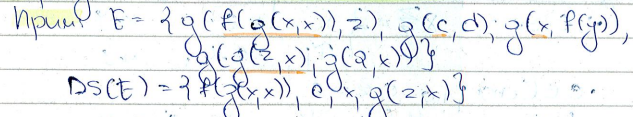 Прим: E = { g(f(g(x,x)),z), g(c,d), g(x,f(y)),
g(g(z,x), g(a,x)) }
DS(E) = { f(g(x,x)), c, x, g(z,x) }